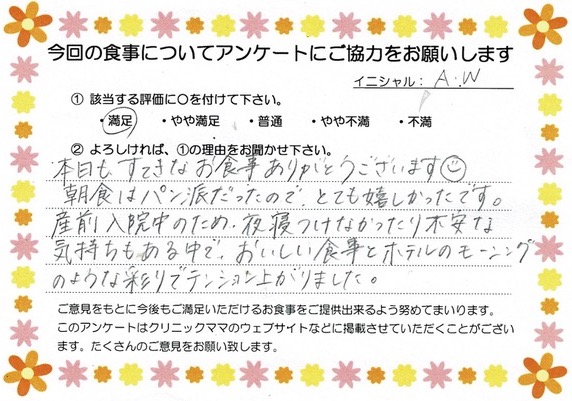 今回の食事についてアンケートにご協力をお願いします
イニシャル： A.W
① 該当する評価に○を付けて下さい。
・満足 ・やや満足 ・普通 ・やや不満 ・不満
② よろしければ、①の理由をお聞かせ下さい。
本日も すてきなお食事ありがとうございます☺
朝食はパン派だったので、とても嬉しかったです。
産前入院中のため、夜寝つけなかったり不安な
気持ちもある中で、おいしい食事とホテルのモーニング
のような彩りでテンション上がりました。
ご意見をもとに今後もご満足いただけるお食事をご提供出来るよう努めてまいります。
このアンケートはクリニックママのウェブサイトなどに掲載させていただくことがござい
ます。たくさんのご意見をお願い致します。